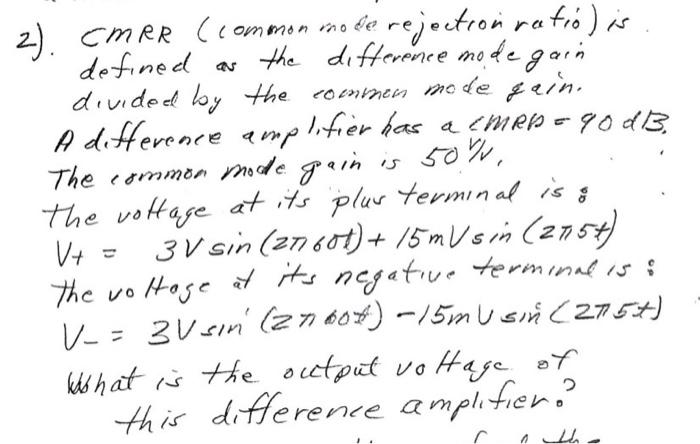 2). CMRR (common mode rejection ratio) is
defined as the difference mode gain
divided by the common mode gain.
A difference amplifier has a CMRR = 90 dB.
The common mode gain is 50 V/V.
The voltage at its plus terminal is :
V+ = 3V sin (2π60t) + 15mV sin (2π5t)
The voltage at its negative terminal is :
V- = 3V sin (2π60t) - 15mV sin (2π5t)
What is the output voltage of
this difference amplifier?